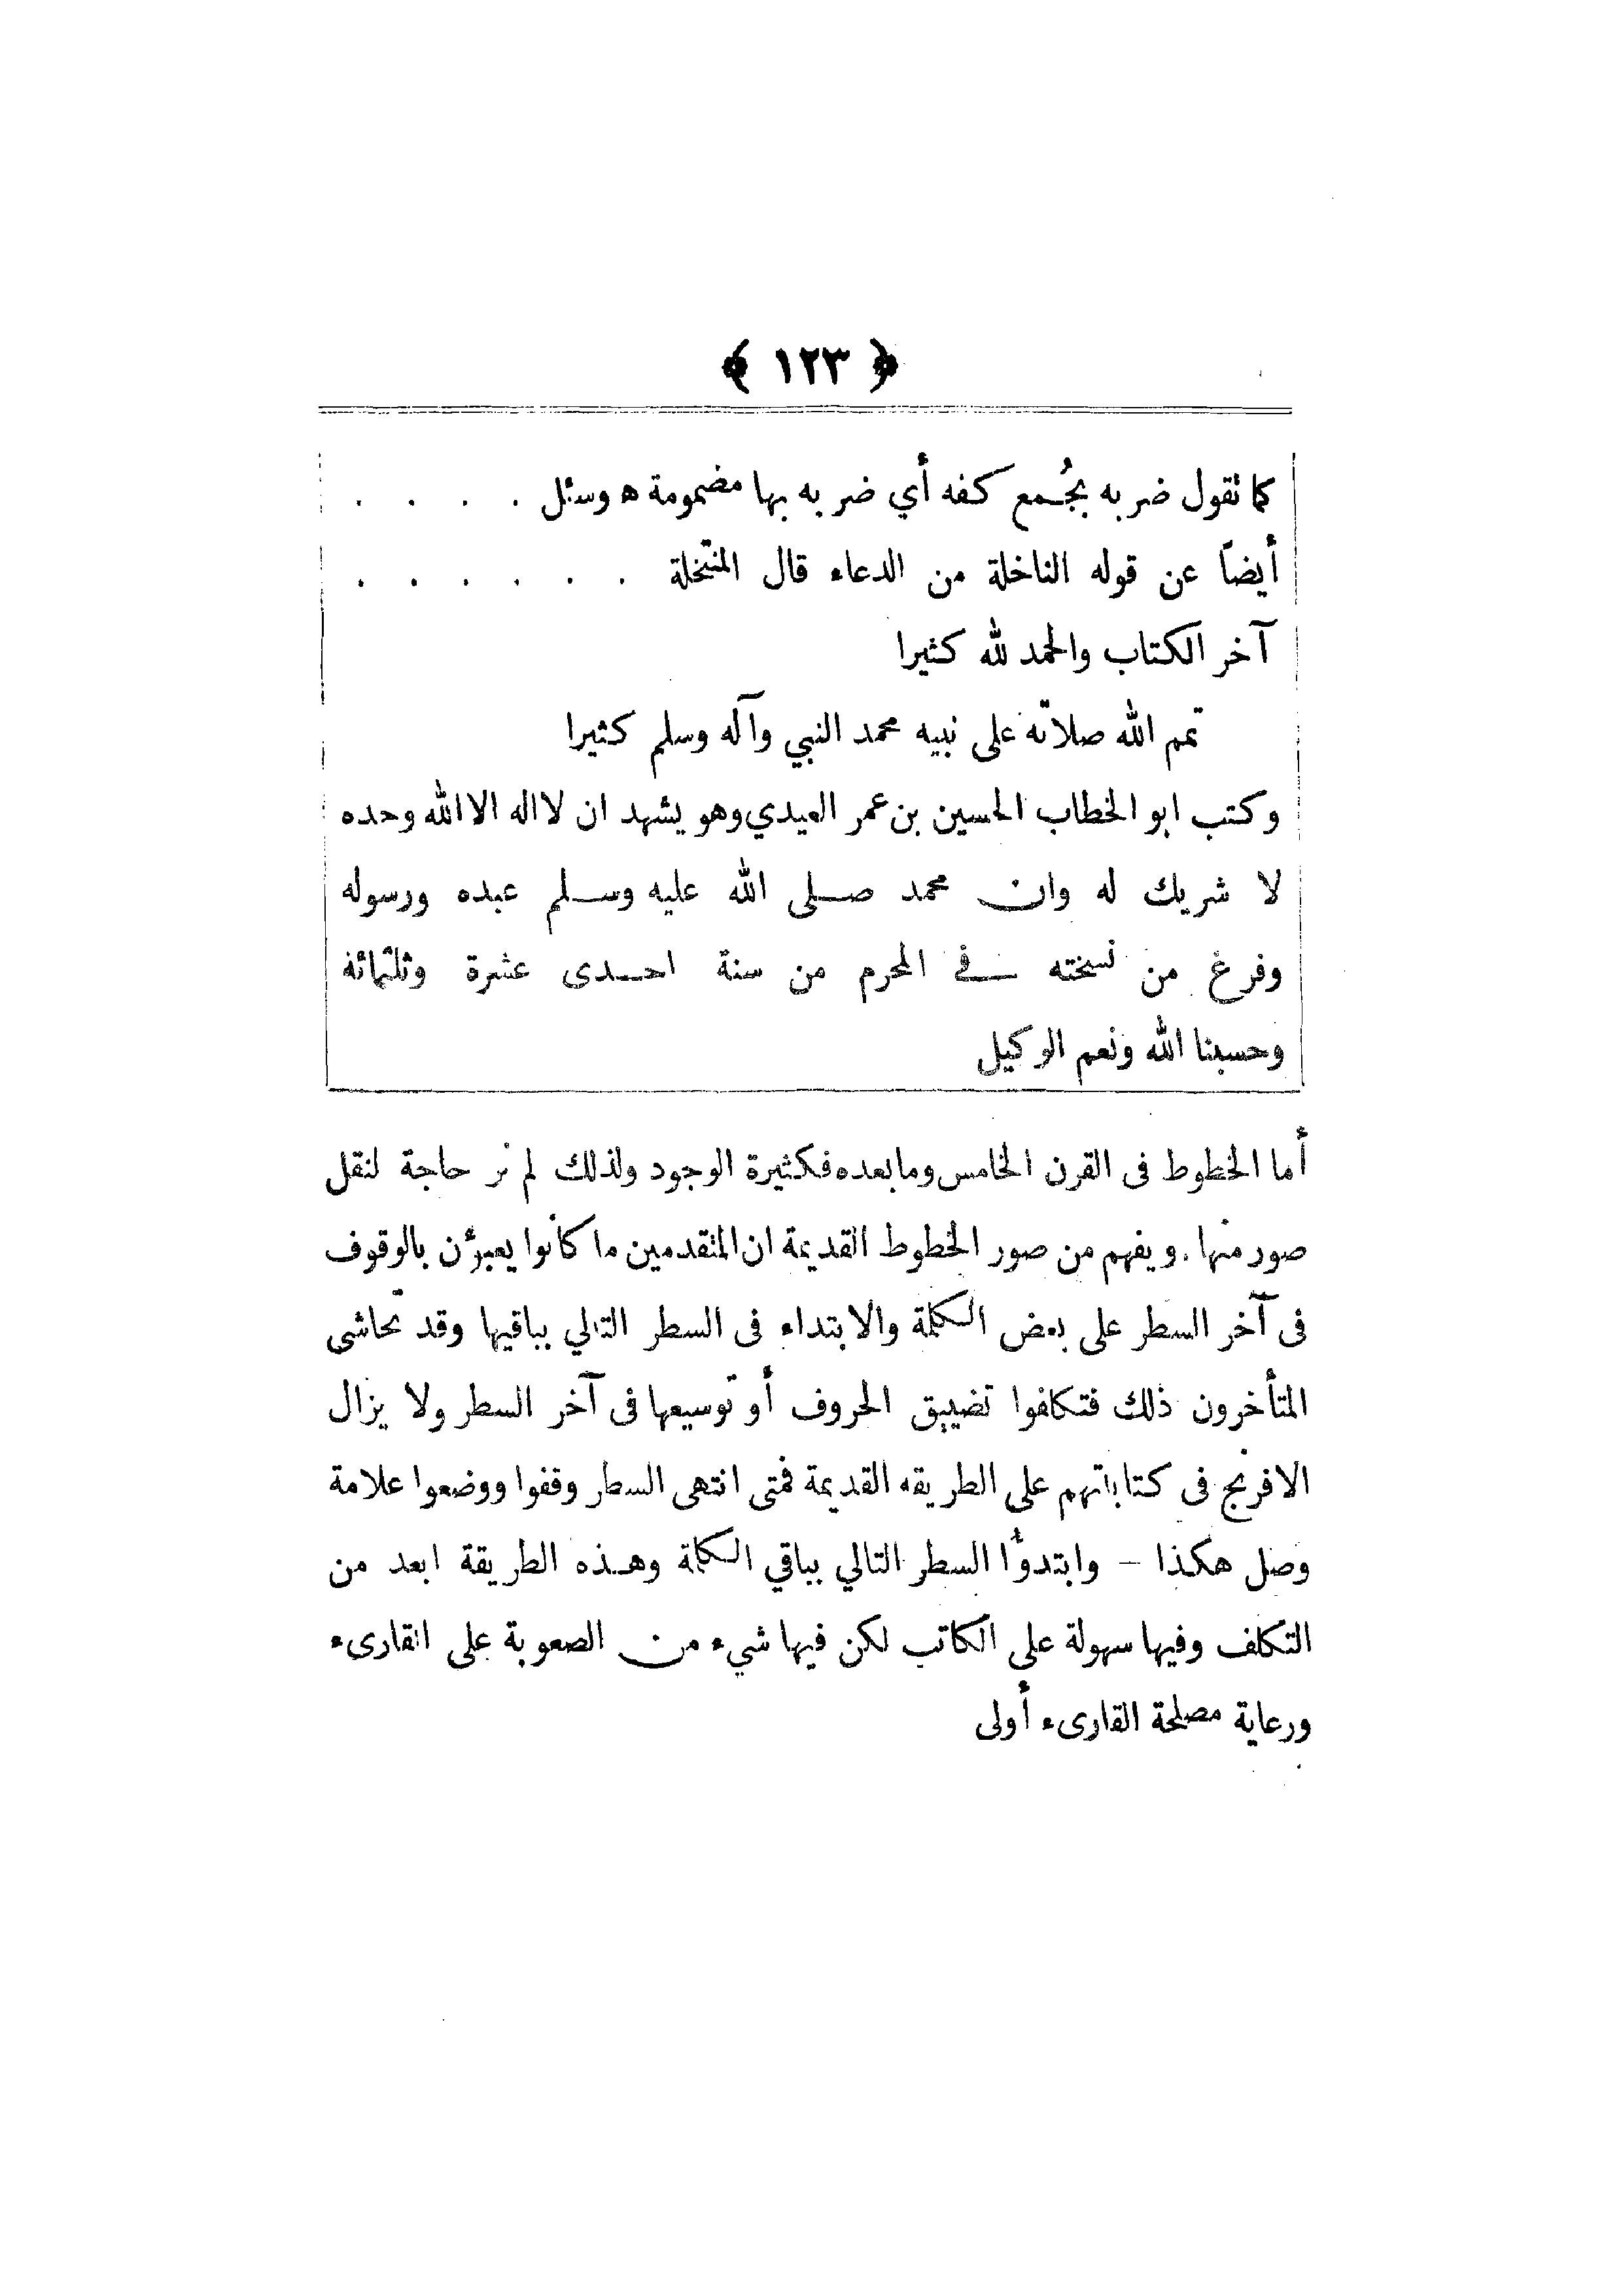 ﴿ ١٢٣ ﴾
كما تقول ضربه بجُمع كفه أي ضربه بها مضمومة ه وسئل . . . .
أيضاً عن قوله الناخلة من الدعاء قال المنتخلة . . . . . .
آخر الكتاب والحمد لله كثيرا
تمم الله صلاته على نبيه محمد النبي وآله وسلم كثيرا
وكتب ابو الخطاب الحسين بن عمر العيدي وهو يشهد ان لا اله الا الله وحده
لا شريك له وان محمد صلى الله عليه وسلم عبده ورسوله
وفرغ من نسخته في المحرم من سنة احدى عشرة وثلثمائة
وحسبنا الله ونعم الوكيل
أما الخطوط في القرن الخامس وما بعده فكثيرة الوجود ولذلك لم نر حاجة لنقل
صور منها . ويفهم من صور الخطوط القديمة ان المتقدمين ما كانوا يعبؤن بالوقوف
في آخر السطر على بعض الكلمة والابتداء في السطر التالي بباقيها وقد تحاشى
المتأخرون ذلك فتكلفوا تضييق الحروف أو توسيعها في آخر السطر ولا يزال
الافرنج في كتاباتهم على الطريقه القديمة فمتى انتهى السطر وقفوا ووضعوا علامة
وصل هكذا – وابتدؤا السطر التالي بباقي الكلمة وهذه الطريقة ابعد من
التكلف وفيها سهولة على الكاتب لكن فيها شيء من الصعوبة على القارىء
ورعاية مصلحة القارىء أولى